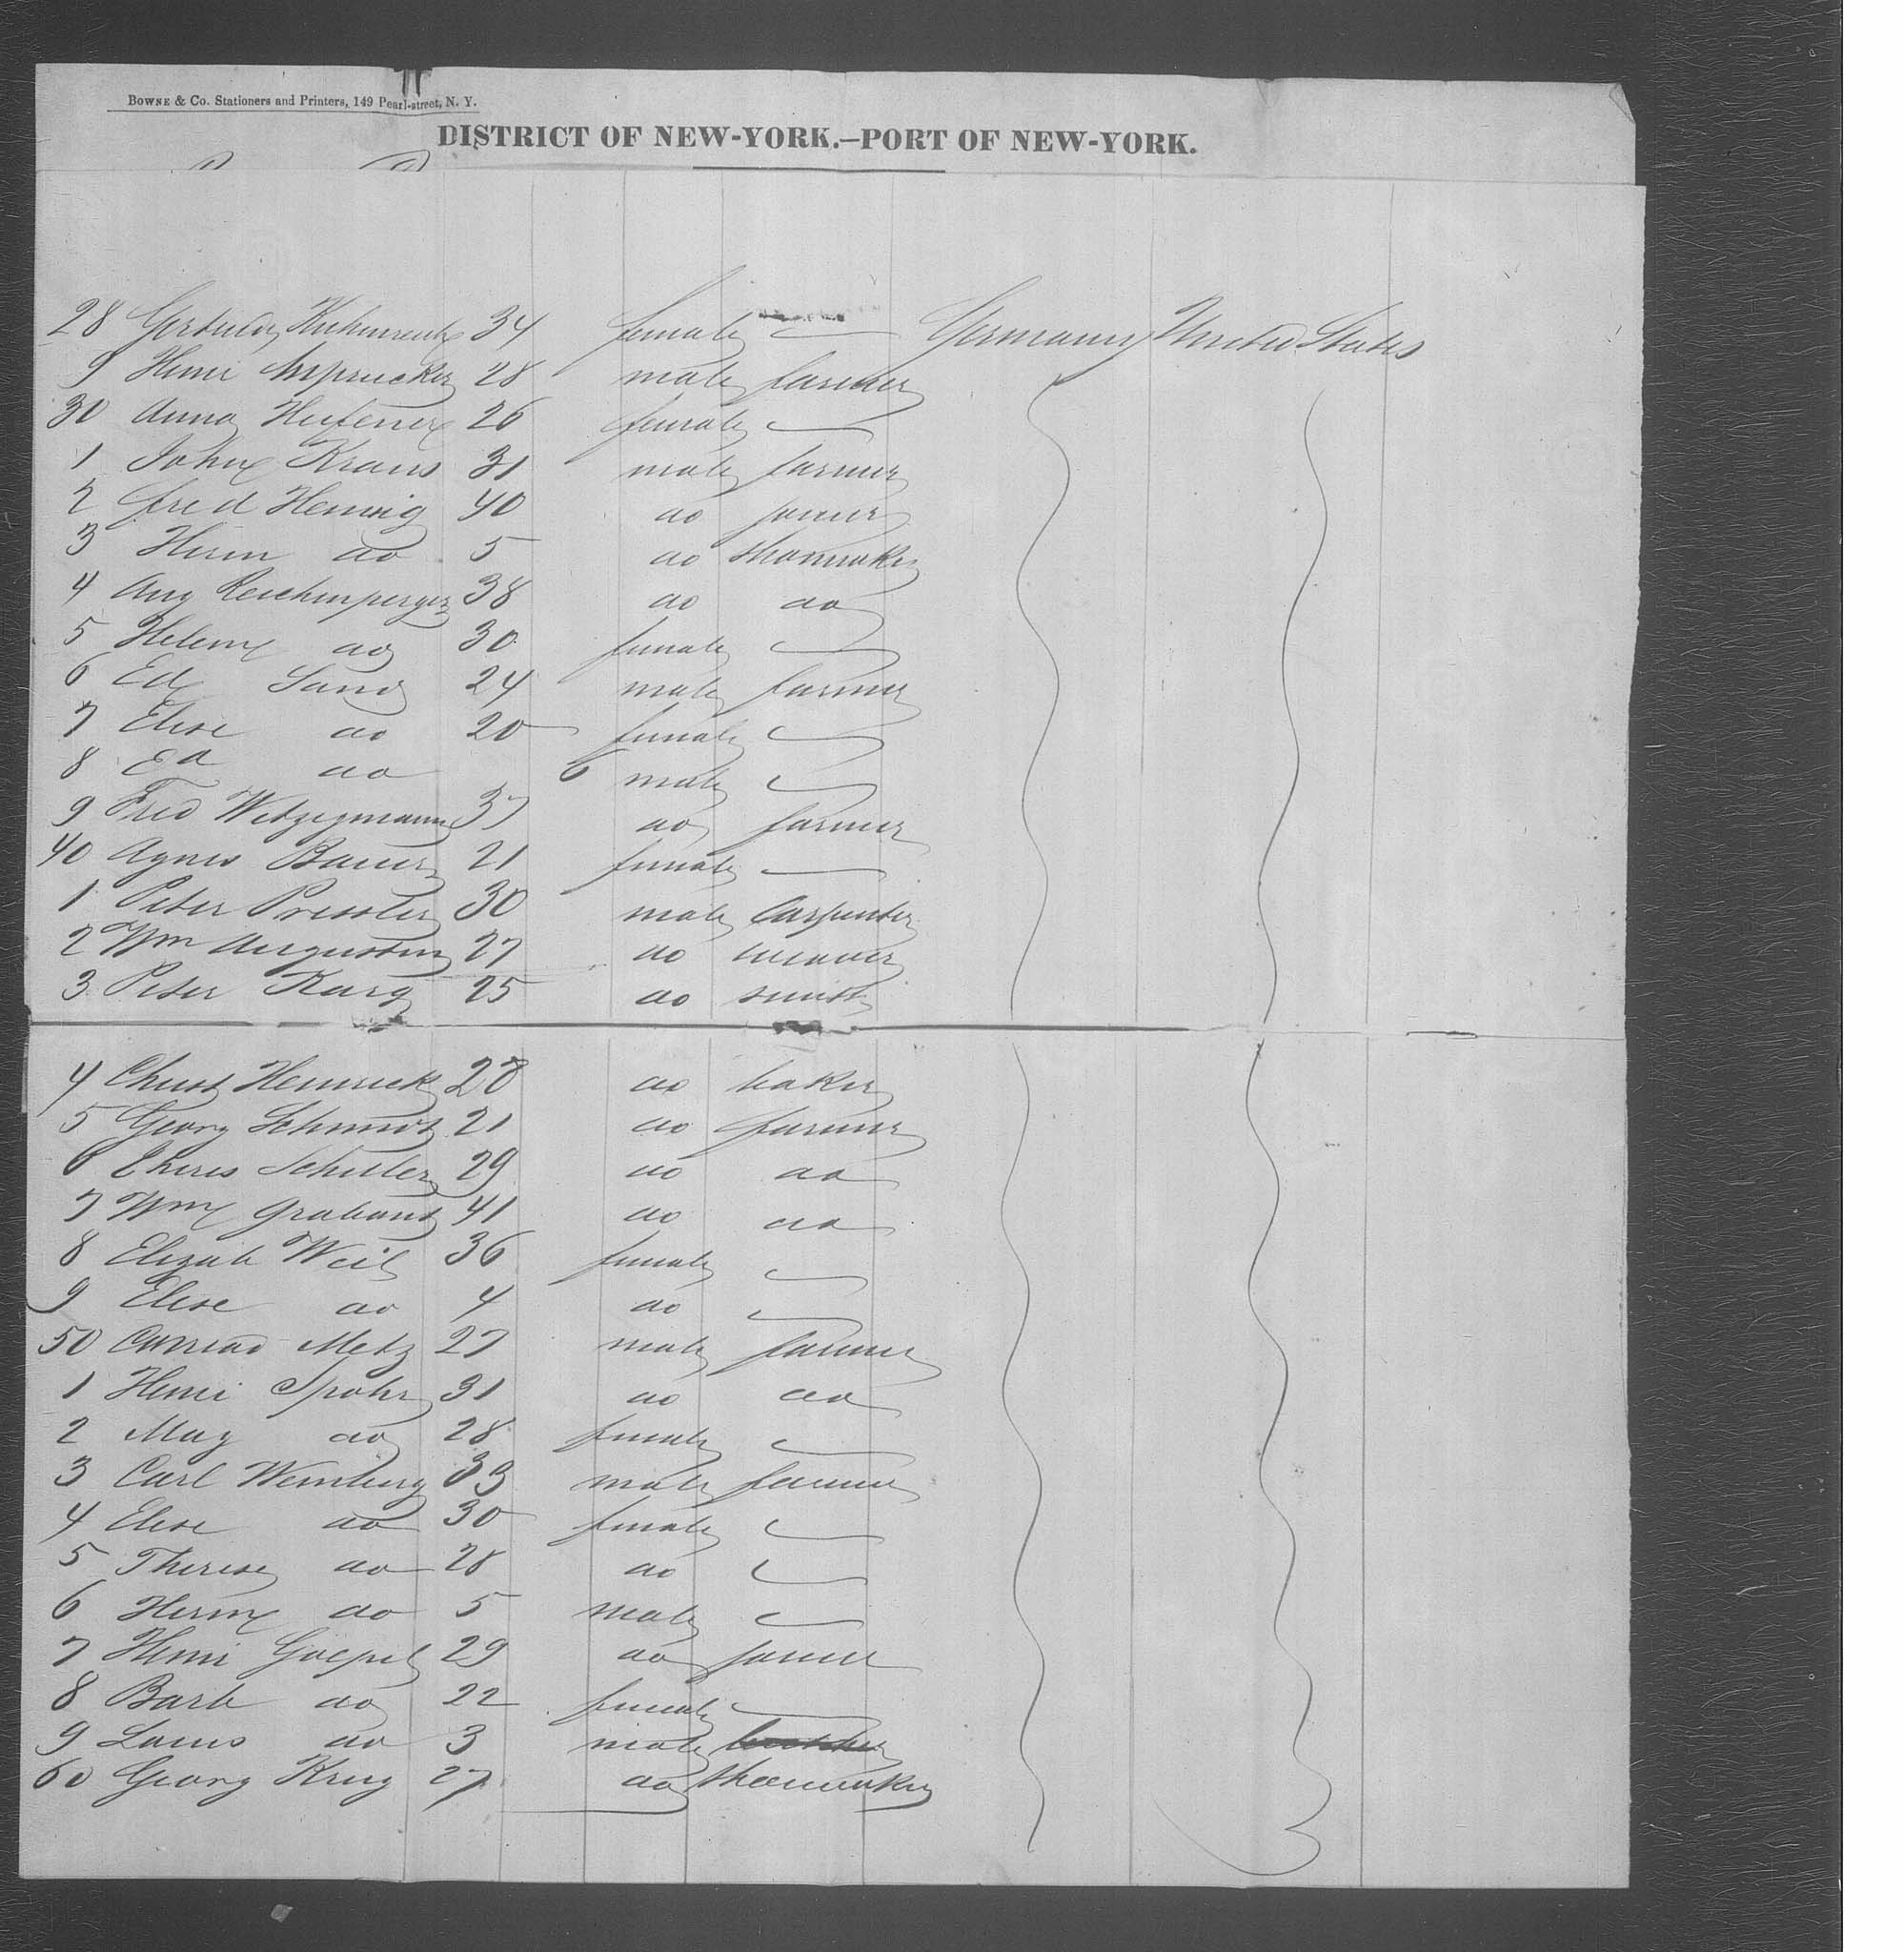 BOWNE & Co. Stationers and Printers, 149 Pearl-street, N. Y.
DISTRICT OF NEW-YORK.—PORT OF NEW-YORK.
28 34 female Germany United States
9 Henri 28 male farmer
30 Anna 26 female
1 John Kraus 31 male farmer
2 Fred Hennig 40 do joiner
3 Herm do 5 do shomaker
4 Aug Reichensperger 38 do do
5 Helene do 30 female
6 Ed Sand 24 male farmer
7 Elise do 20 female
8 Ed do 6 male
9 Fred Witzigmann 37 do farmer
40 Agnes Bauer 21 female
1 Peter Pressler 30 male Carpenter
2 Wm Augustin 27 do weaver
3 Peter Karg 25 do smith
4 Christ Henrick 28 do baker
5 Georg Schmidt 21 do farmer
6 Schuler 29 do do
7 Wm Grabant 41 do do
8 Elizab Weil 36 female
9 Elise do 4 do
50 Conrad Metz 27 male farmer
1 Henri Spohr 31 do do
2 Mag do 28 female
3 Carl Weinberg 33 male farmer
4 Elise do 30 female
5 Therese do 28 do
6 Herm do 5 male
7 Henri Goepel 29 do joiner
8 Barb do 22 female
9 Louis do 3 male butcher
60 Georg Krug 27 do shoemaker